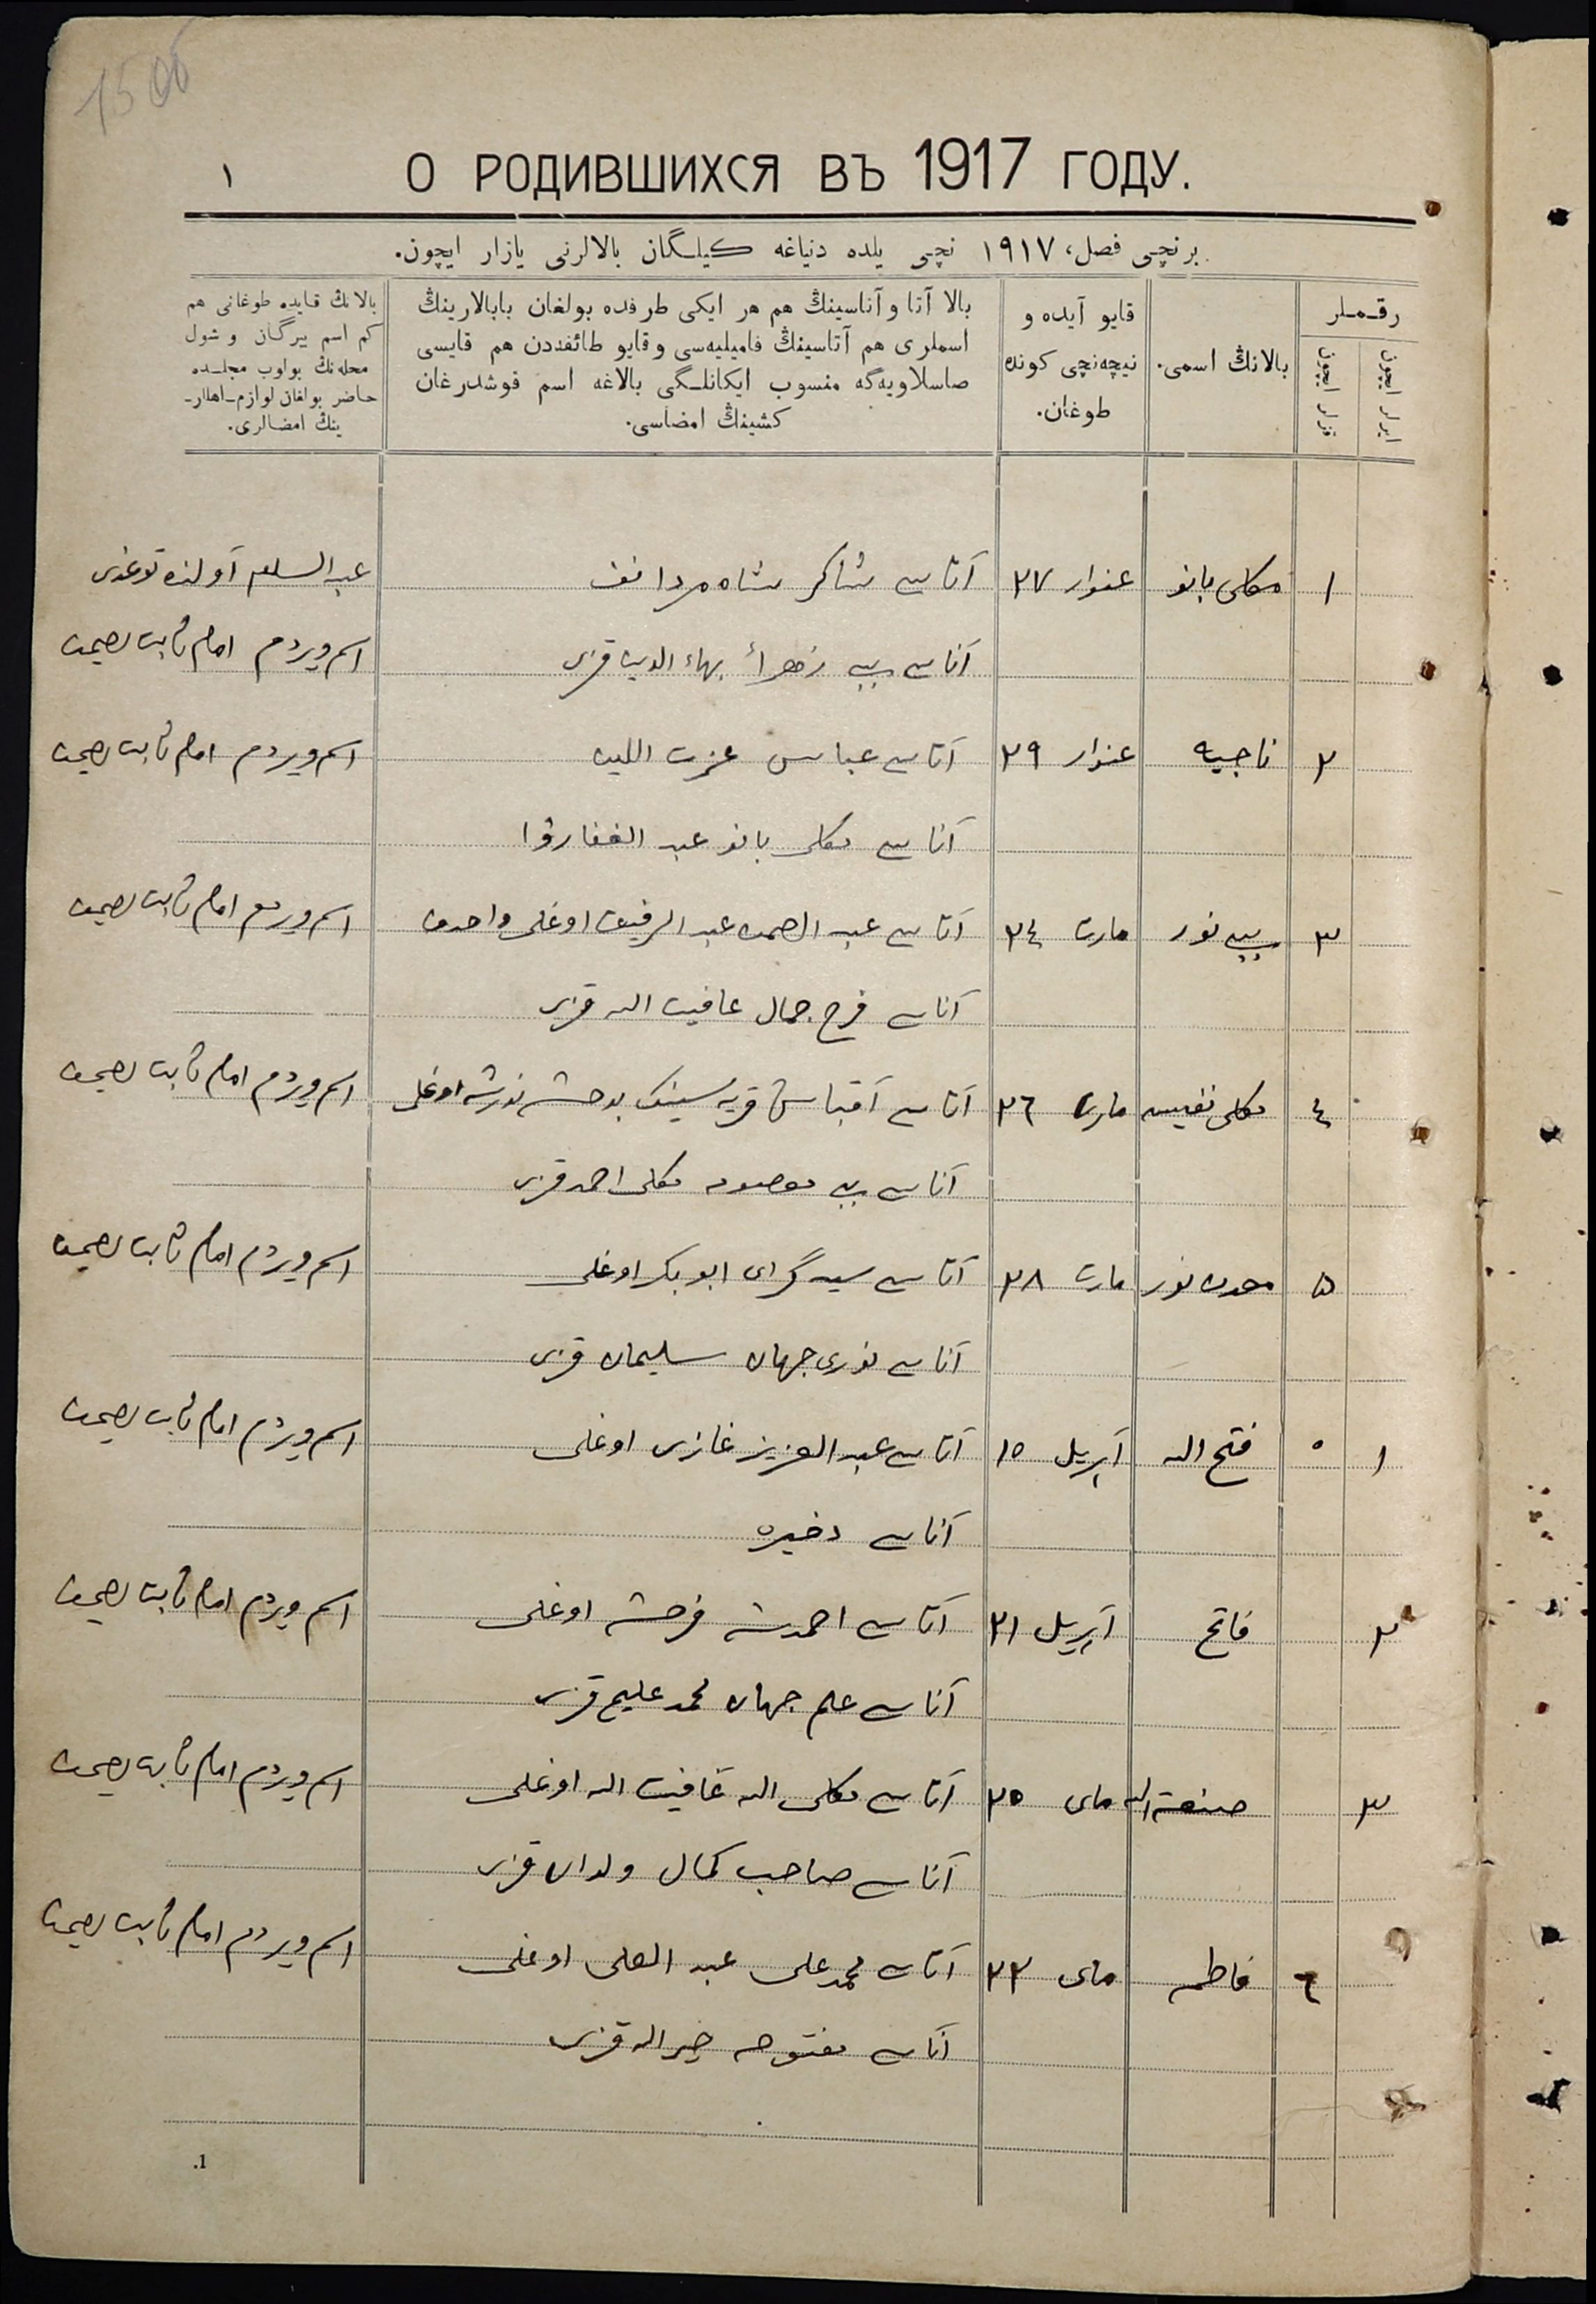 150б
О РОДИВШИХСЯ ВЪ 1917 ГОДУ.
١
برنچی فصل، ١٩١٧ نچی یلده دنیاغه کیلگان بالالرنی یازار ایچون.
رقملر
ایرلر ایچون
قزلر ایچون
بالانڭ اسمی.
قایو آیده و
نیچه‌نچی کونده
طوغان.
بالا آتا و آناسینڭ هم هر ایکی طرفده بولغان بابالارینڭ
اسملری هم آتاسینڭ فامیلیه‌سی و قایو طائفه‌دن هم قایسی
صاسلاویه‌گه منسوب ایکانلگی بالاغه اسم قوشدرغان
کشینڭ امضاسی.
بالانڭ قایده طوغانی هم
کم اسم بیرگان و شول
محله‌نڭ بولوب مجلسده
حاضر بولغان لوازم اهللر-
ینڭ امضالری.
١ عنوار ٢٧ آتاسی شاکر شاه مردانف
اسم ویردم امام ثابت
آناسی بیبی زهراء بهاء الدین قزی
٢ ناجیه عنوار ٢٩ آتاسی عباس عزت اللین اسم ویردم امام ثابت
آناسی بانو عبد الغفاروا
٣ بیبی نور مارت ٢٤ آتاسی عبد الصمد عبد الرفیق اوغلی واحدف اسم ویردم امام ثابت
آناسی فرح جمال عافیت الله قزی
٤ نفیسه مارت ٢٦ آتاسی قریه سینڭ اوغلی اسم ویردم امام ثابت
آناسی بیبی معصومه احمد قزی
٥ نور مارت ٢٨ آتاسی سید گرای ابو بکر اوغلی اسم ویردم امام ثابت
آناسی نوری جهان سلیمان قزی
١ ٠ فتح الله آپریل ١٥ آتاسی عبد العزیز غازی اوغلی اسم ویردم امام ثابت
آناسی
٢ فاتح آپریل ٢١ آتاسی احمدشه اوغلی اسم ویردم امام ثابت
آناسی علم جهان محمد علیم قزی
٣ صنعة الله مای ٢٥ آتاسی الله عافیت الله اوغلی اسم ویردم امام ثابت
آناسی صاحب کمال ولدان قزی
٦ فاطمه مای ٢٣ آتاسی محمد علی عبد العلی اوغلی اسم ویردم امام ثابت
آناسی مفتوحه خیر الله قزی
1.